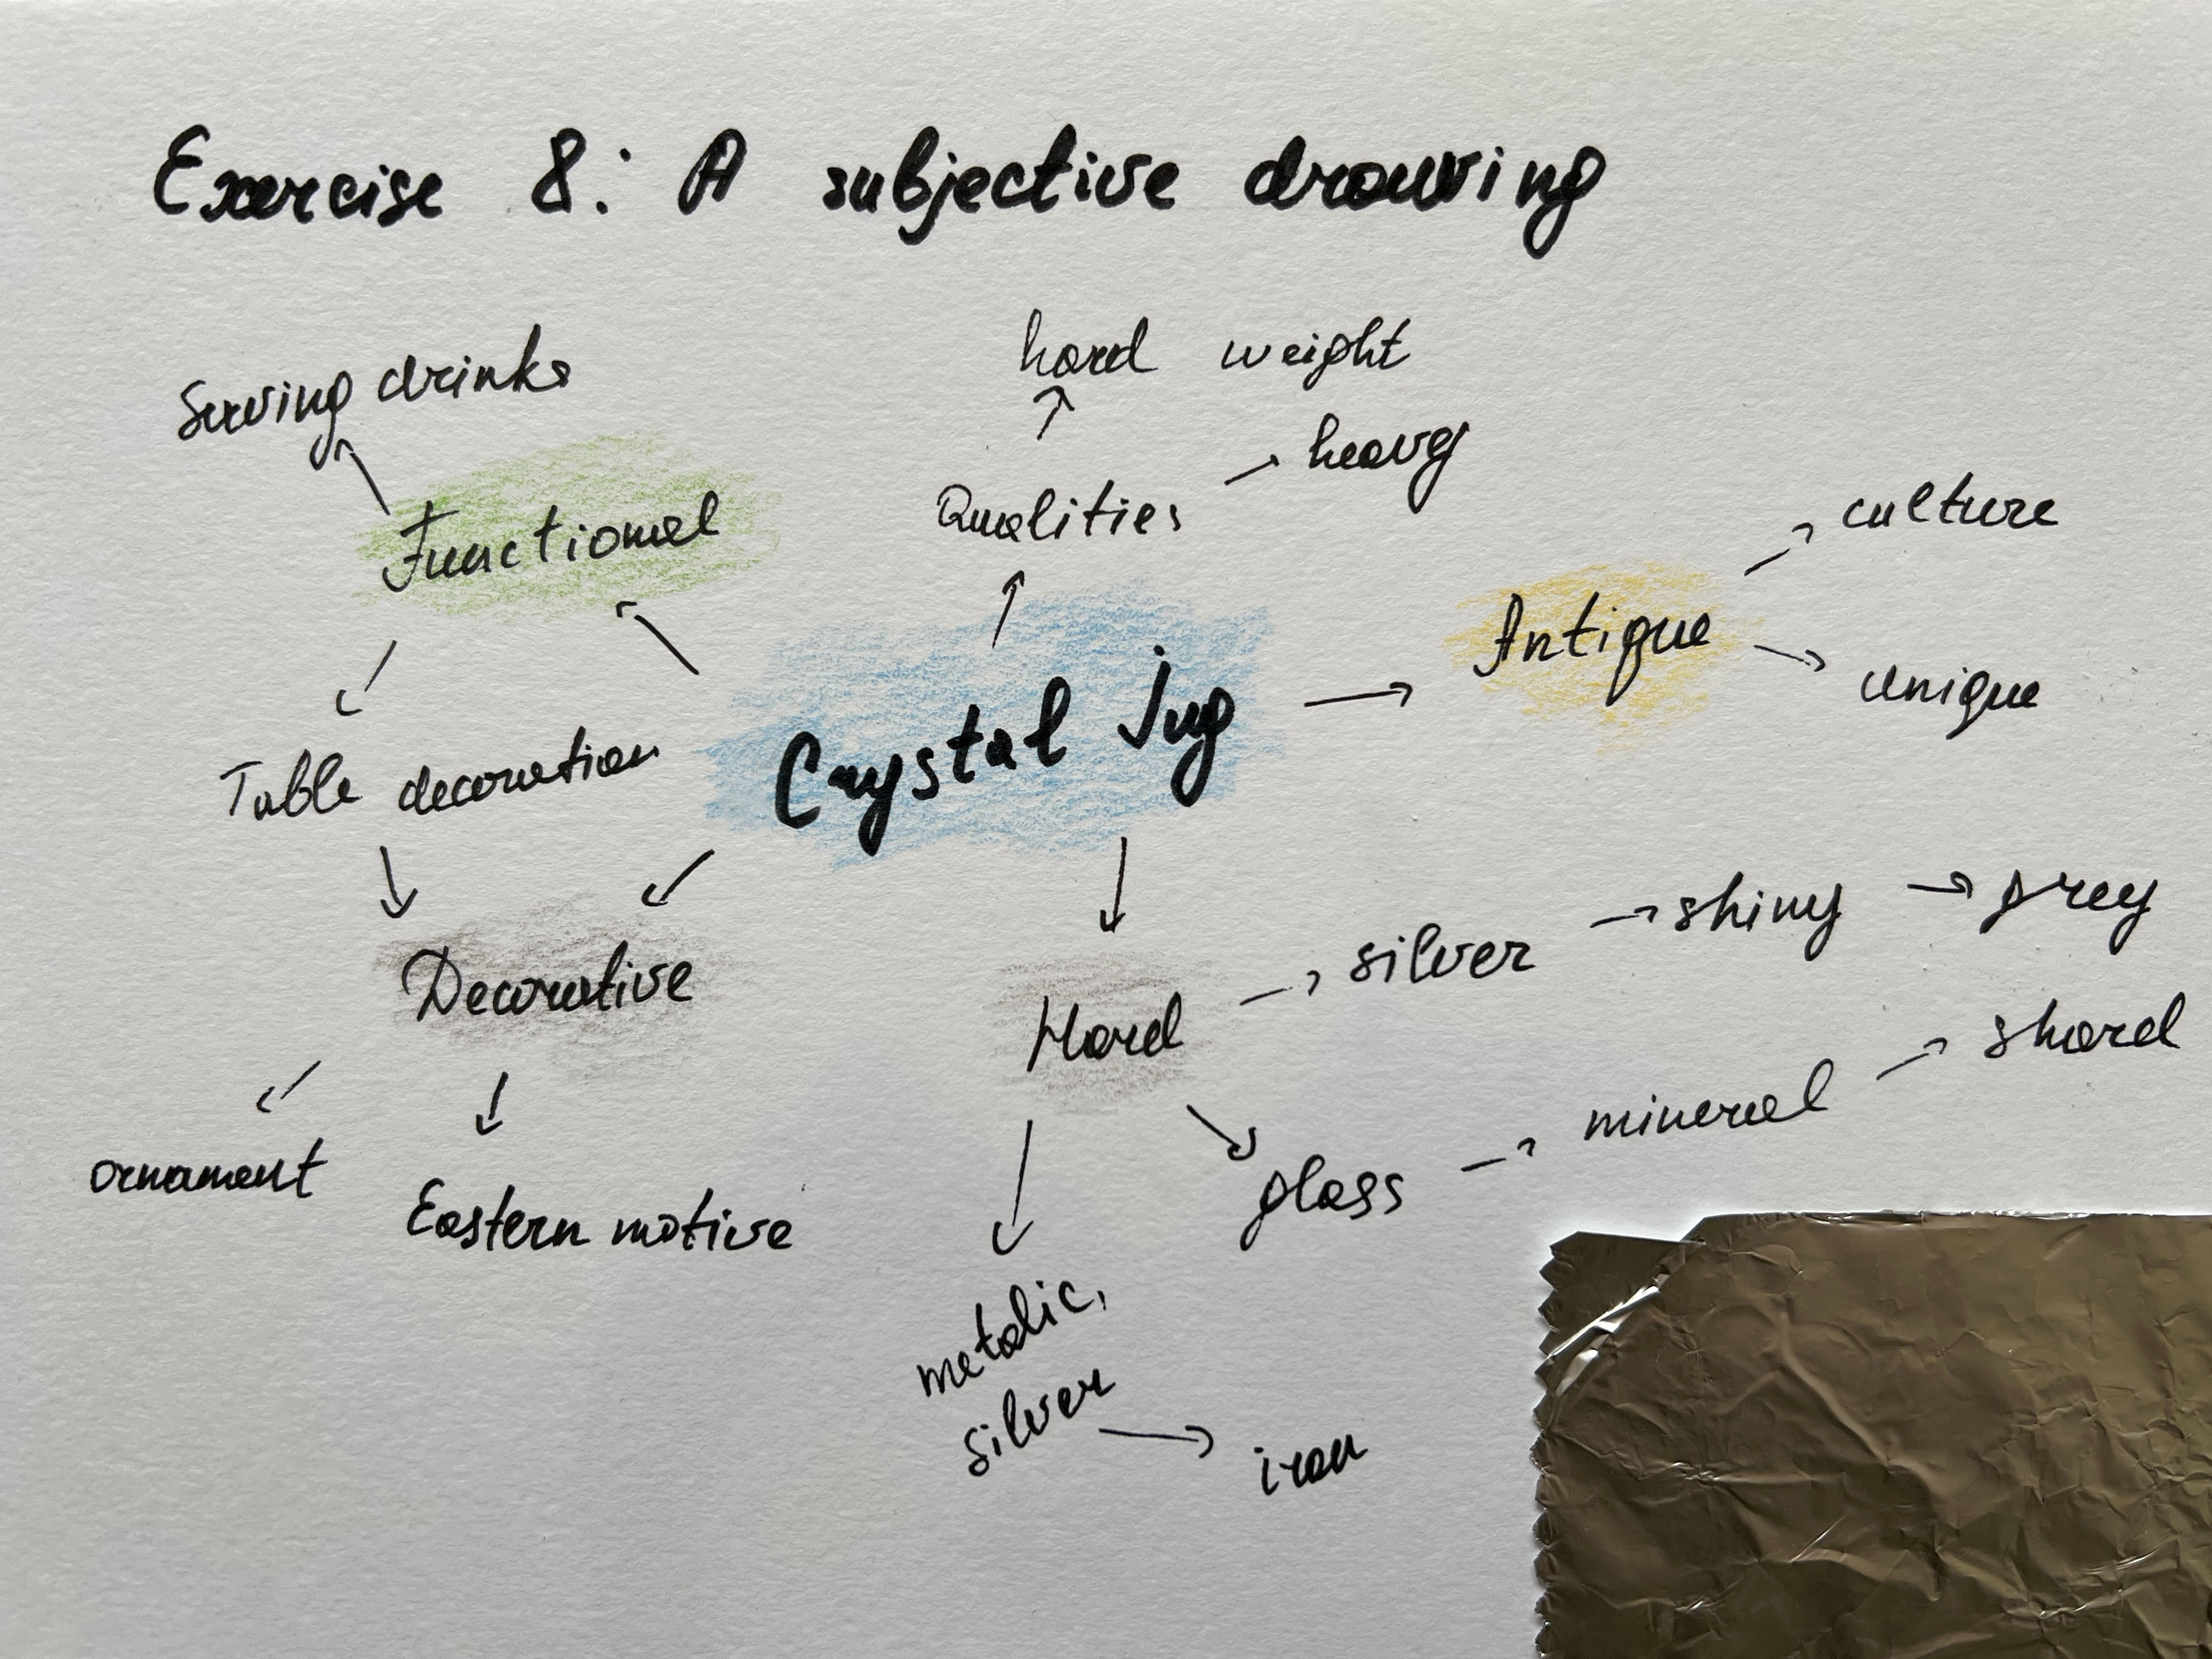 Exercise 8: A subjective drawing
hard weight
Serving drinks
heavy
Qualities
culture
Functional
Antique
unique
Crystal Jug
Table decoration
silver shiny grey
Decorative
Hard
shard
mineral
ornament
glass
Eastern motive
metalic,
silver
iron